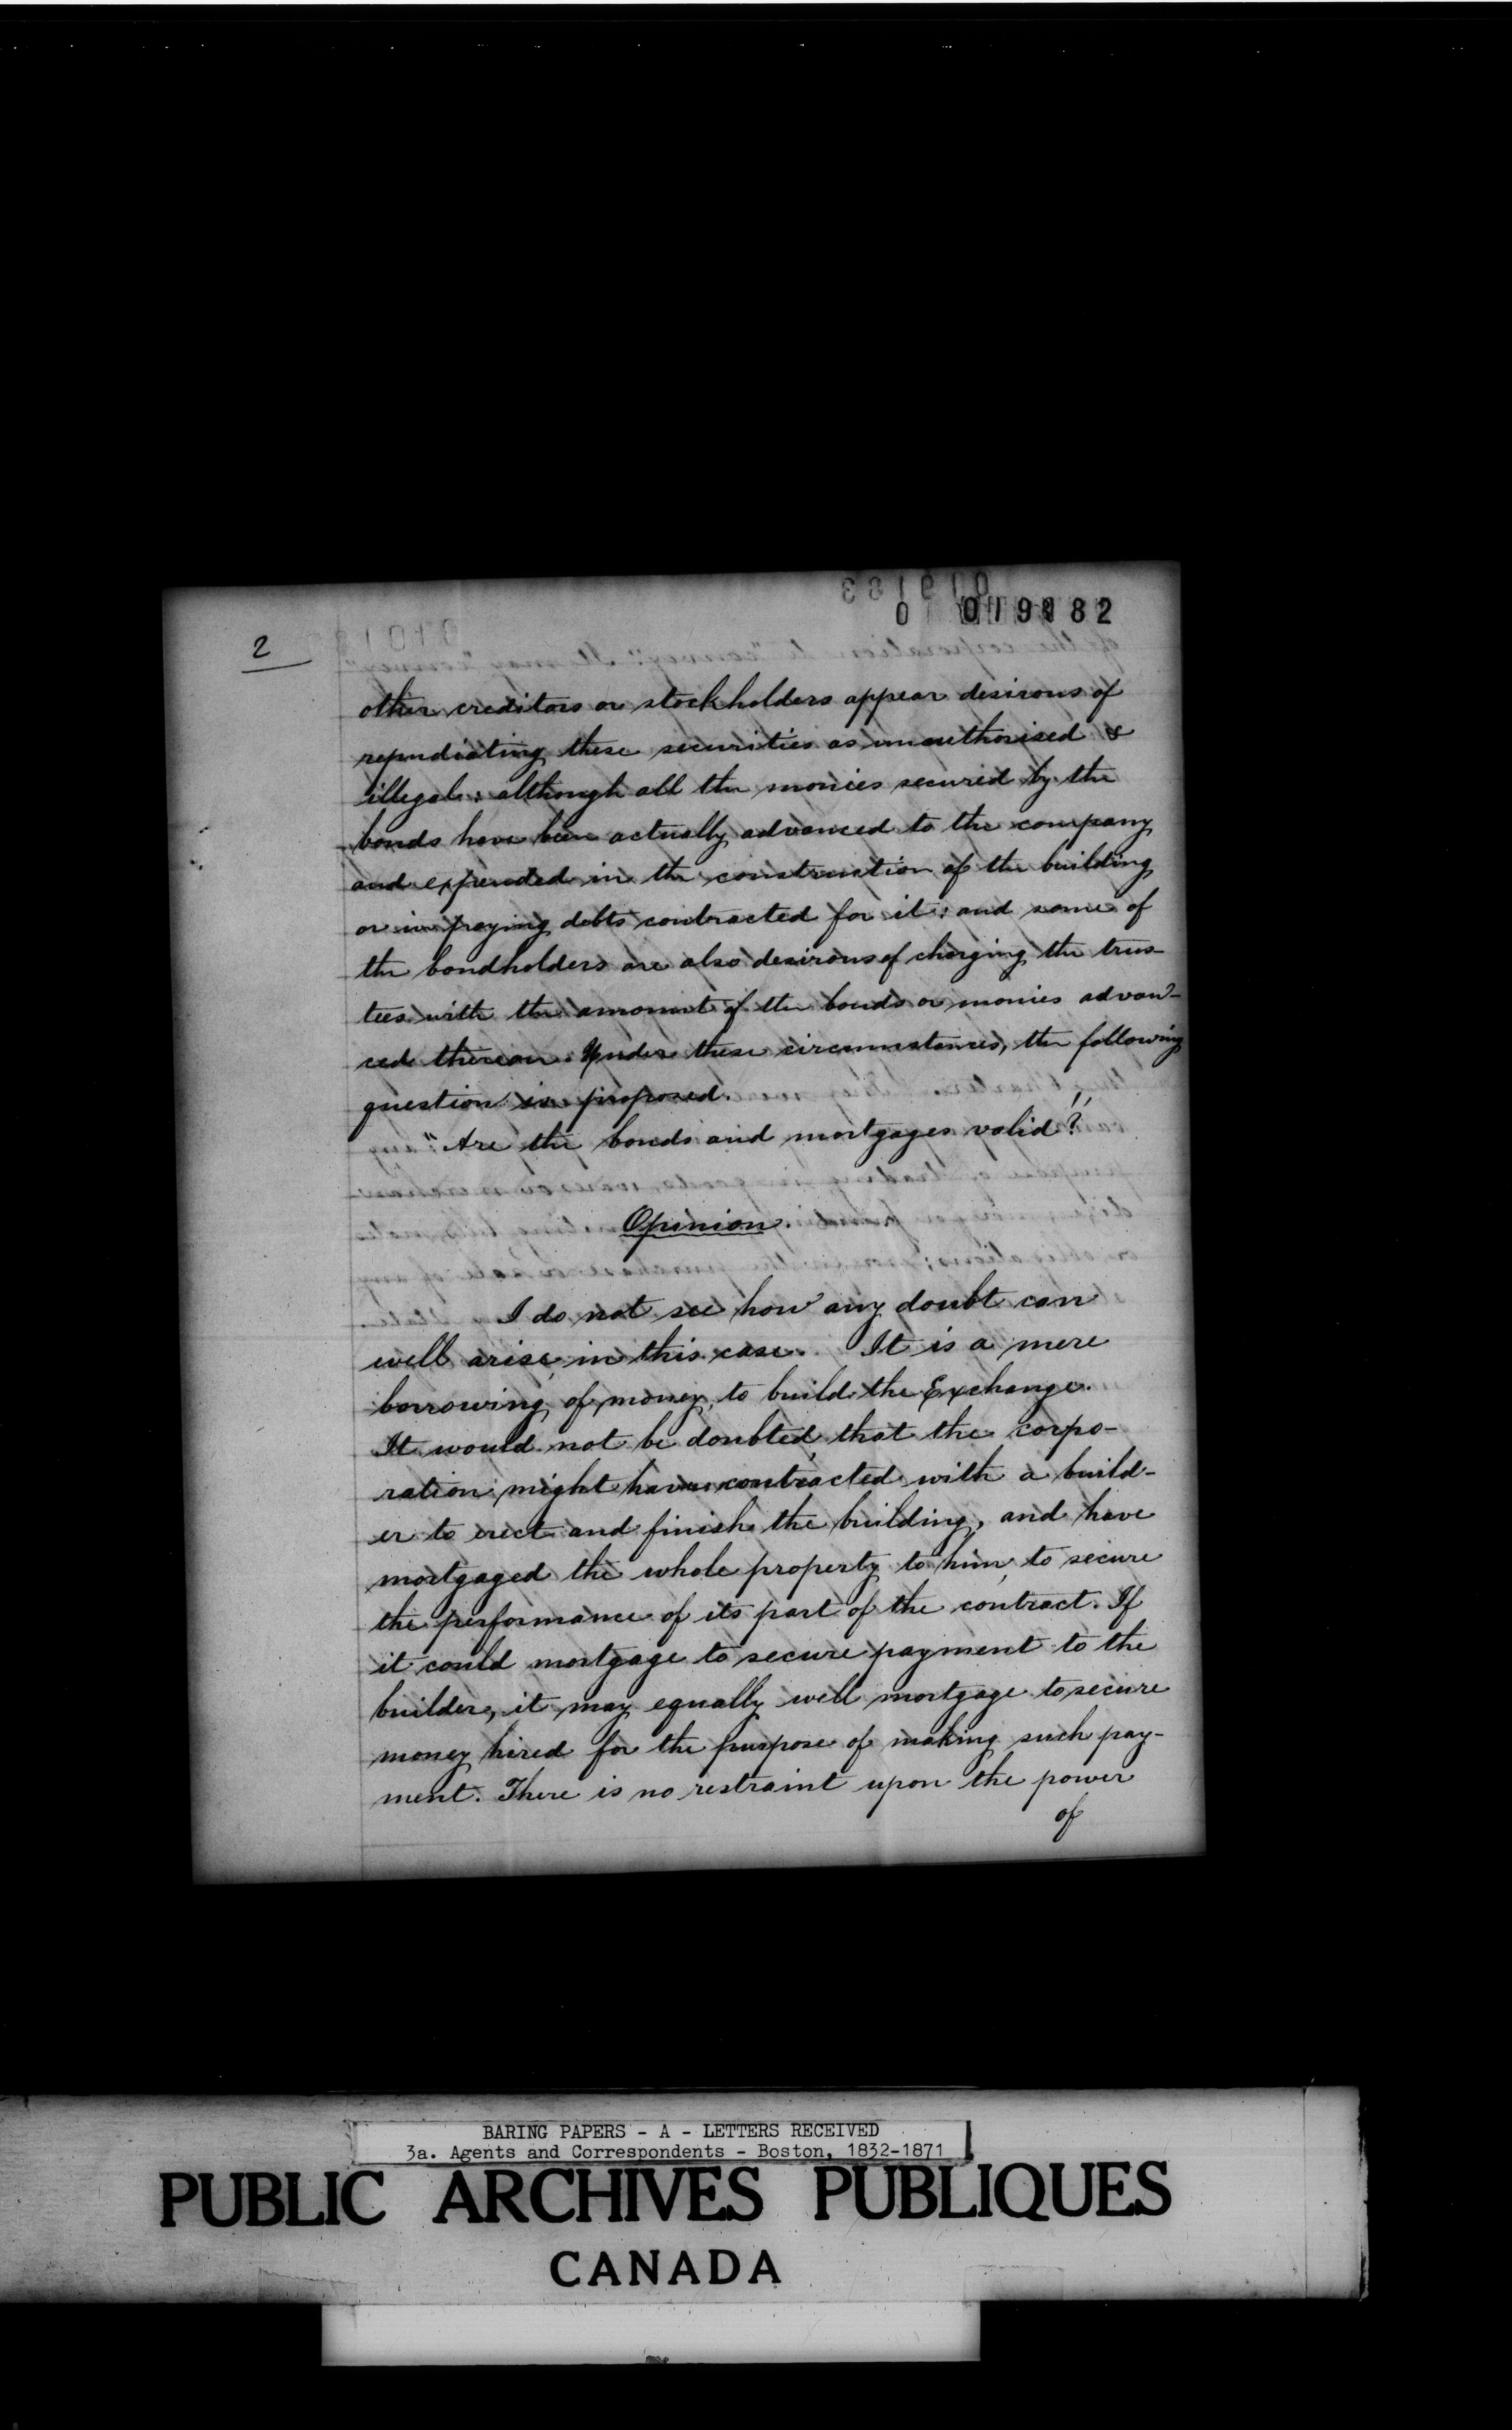 019182
2
other creditors or stockholders appear desirous of
repudiating these securities as unauthorised &
illegal: although all the monies secured by the
bonds have been actually advanced to the company
and expended in the construction of the building
or in paying debts contracted for it: and some of
the bondholders are also desirous of charging the trus-
tees with the amount of the bonds or monies advan-
ced thereon. Under these circumstances, the following
question is proposed.
"Are the bonds and mortgages valid?"
Opinion.
I do not see how any doubt can
well arise in this case. It is a mere
borrowing of money, to build the Exchange.
It would not be doubted that the corpo-
ration might have contracted with a build-
er to erect and finish the building, and have
mortgaged the whole property to him, to secure
the performance of its part of the contract. If
it could mortgage to secure payment to the
builder, it may equally well mortgage to secure
money hired for the purpose of making such pay-
ment. There is no restraint upon the power
of
BARING PAPERS - A - LETTERS RECEIVED
3a. Agents and Correspondents - Boston, 1832-1871
PUBLIC ARCHIVES PUBLIQUES
CANADA